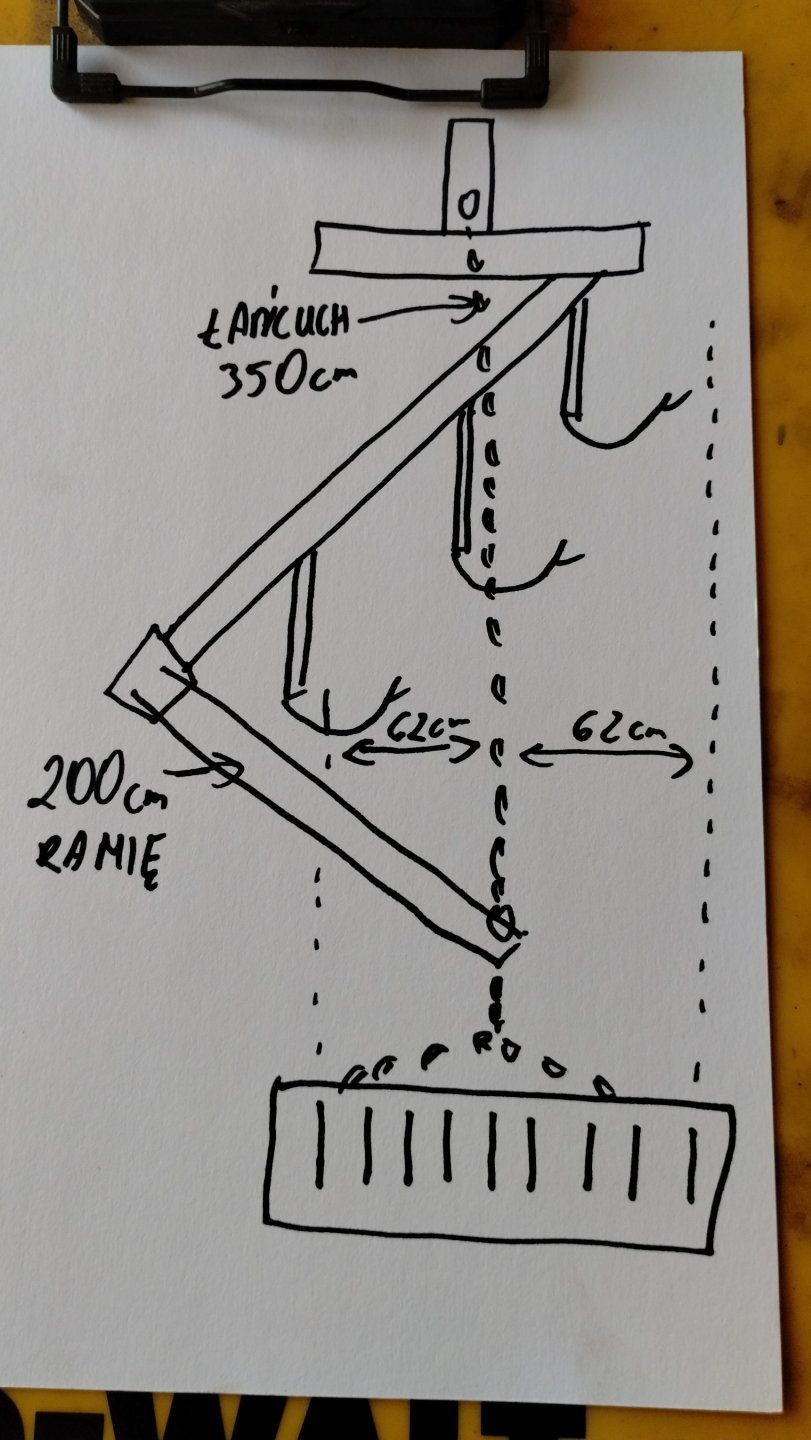 ŁAŃCUCH
350cm
62cm
62cm
200cm
RAMIĘ
WALT